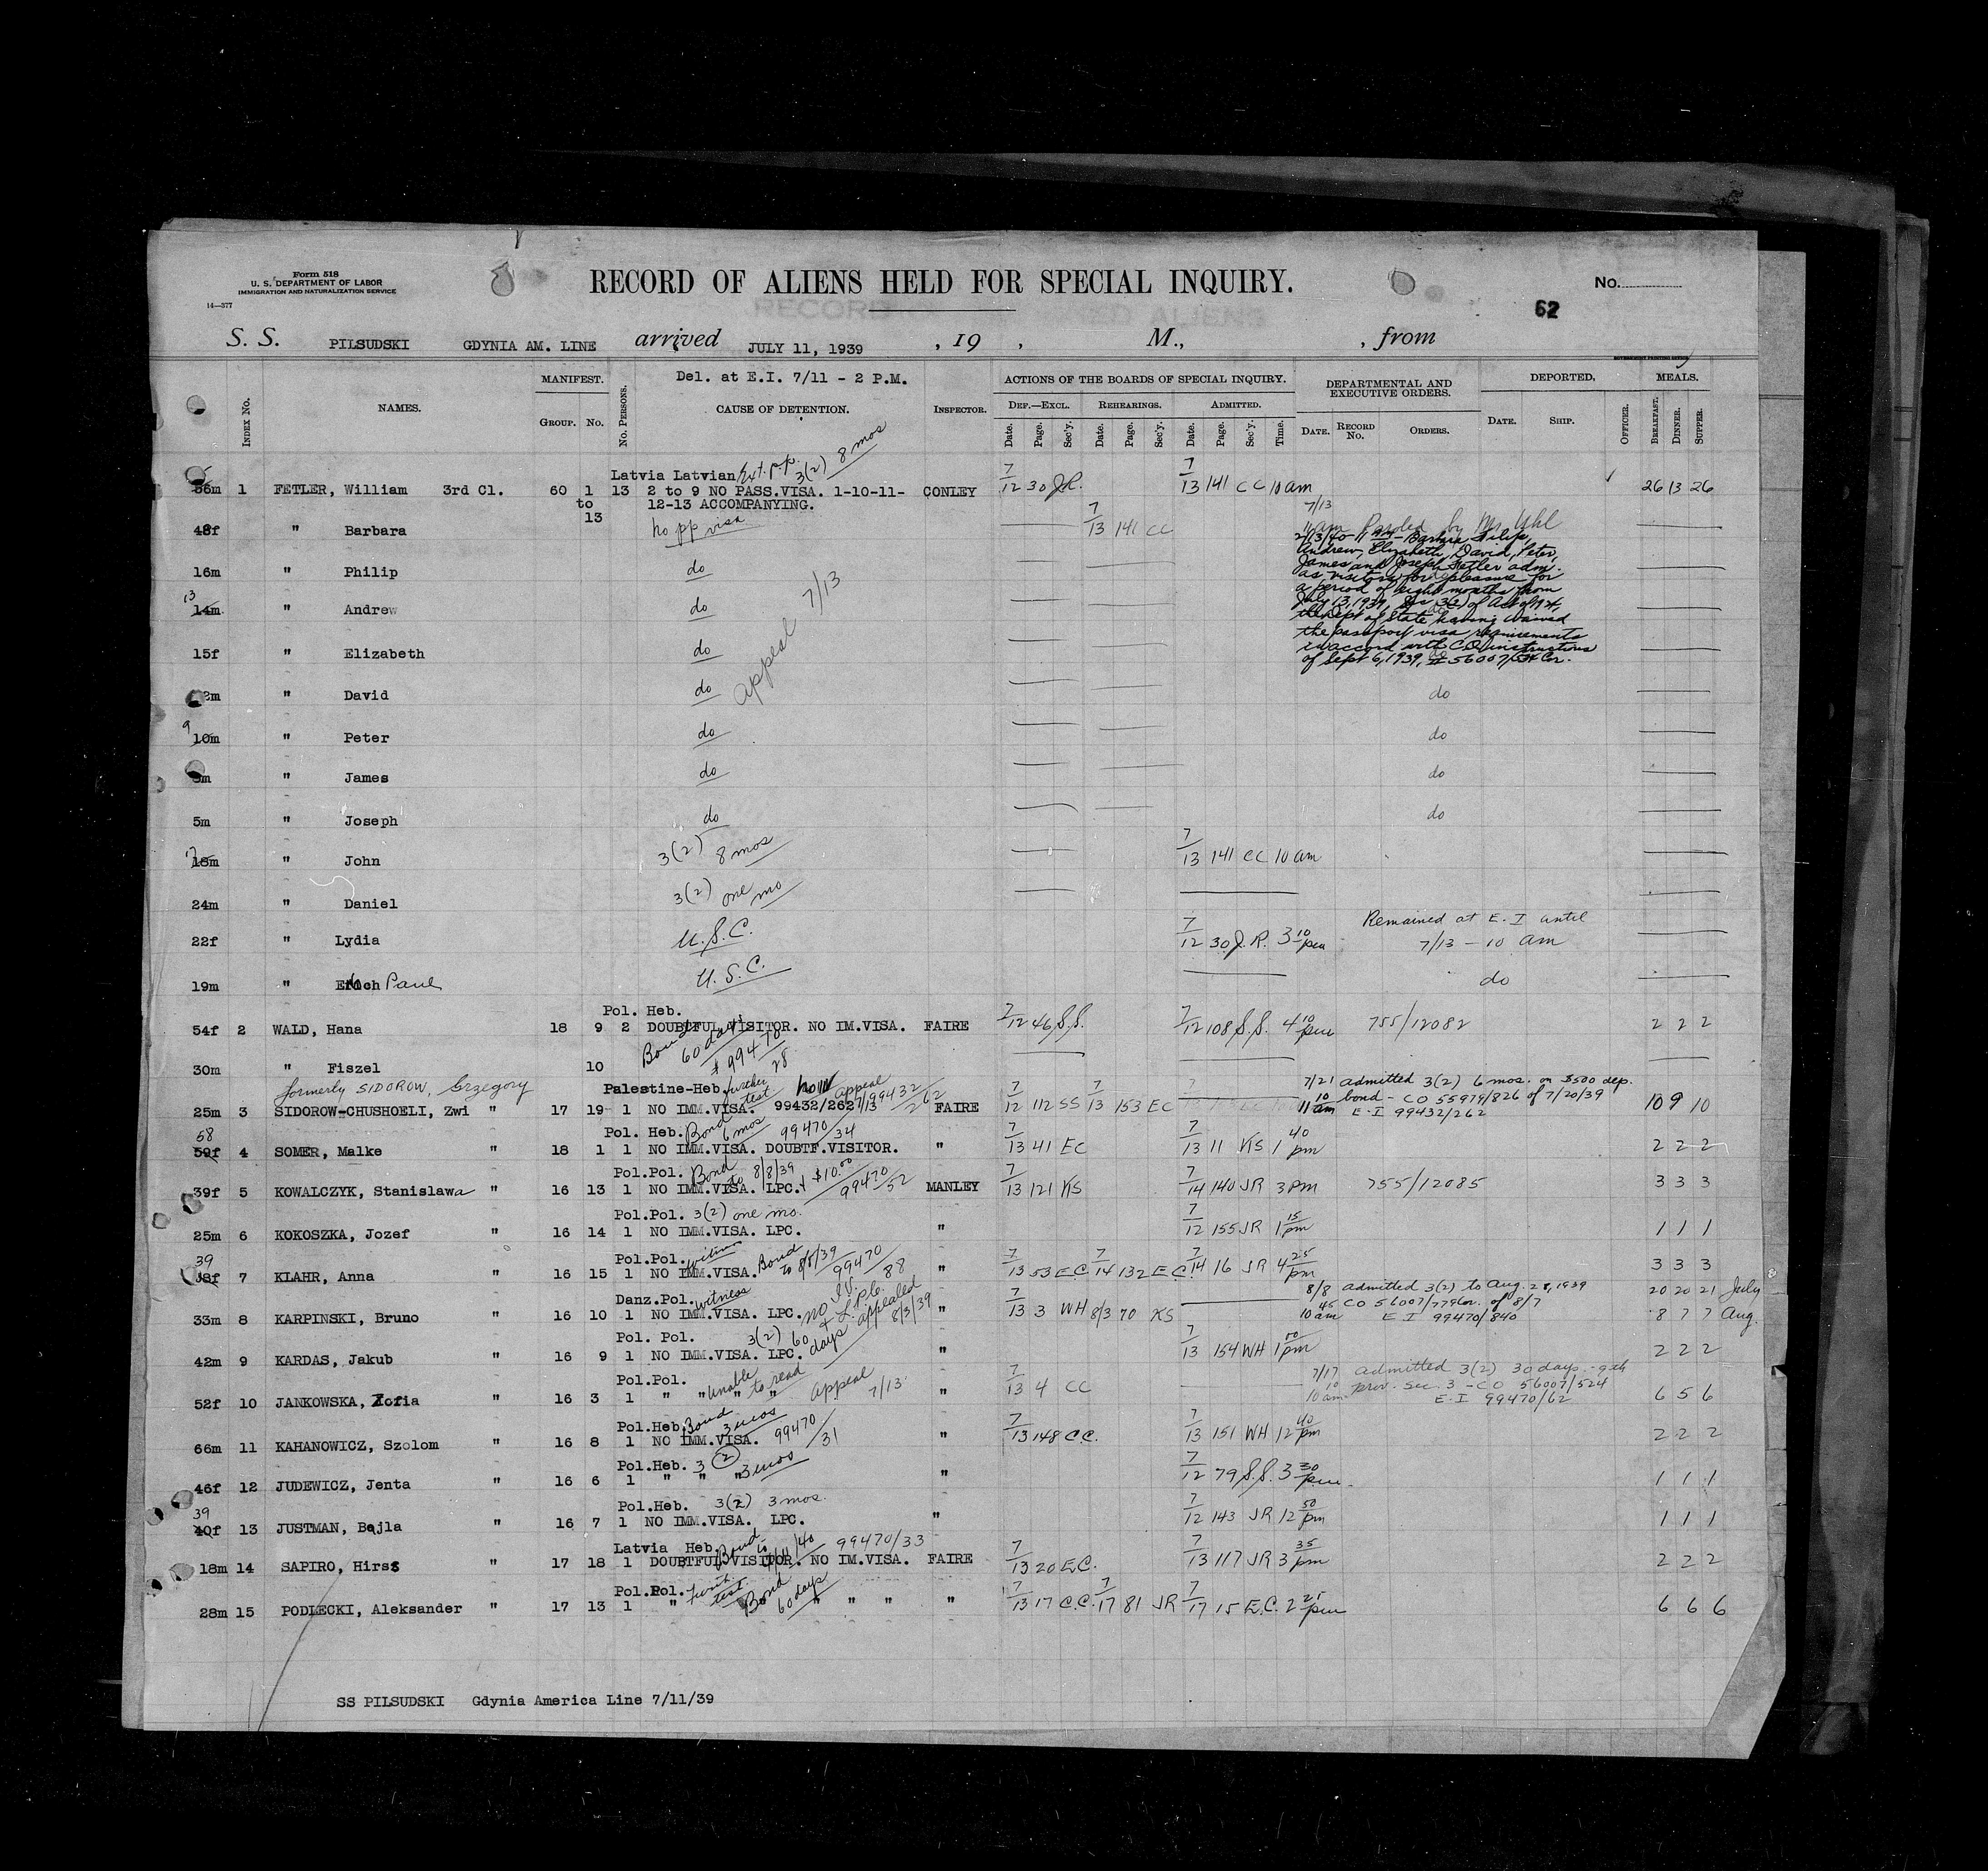 Form 518
U. S. DEPARTMENT OF LABOR
IMMIGRATION AND NATURALIZATION SERVICE
14—577
RECORD OF ALIENS HELD FOR SPECIAL INQUIRY.
No.
62
S. S. PILSUDSKI GDYNIA AM. LINE arrived JULY 11, 1939 , 19 , M., , from
INDEX No. NAMES. MANIFEST. GROUP. No. No. PERSONS. Del. at E.I. 7/11 - 2 P.M. CAUSE OF DETENTION. INSPECTOR. ACTIONS OF THE BOARDS OF SPECIAL INQUIRY. DEF.—EXCL. Date. Page. Sec'y. REHEARINGS. Date. Page. Sec'y. ADMITTED. Date. Page. Sec'y. Time. DEPARTMENTAL AND EXECUTIVE ORDERS. DATE. RECORD No. ORDERS. DEPORTED. DATE. SHIP. OFFICER. MEALS. BREAKFAST. DINNER. SUPPER.
Latvia Latvian Ext. p.p. 3(2) 8 mos
56m 1 FETLER, William 3rd Cl. 60 1 13 2 to 9 NO PASS.VISA. 1-10-11- CONLEY 7/12 30 J.R. 7/13 141 CC 10 am 26 13 26
to 12-13 ACCOMPANYING.
13
48f " Barbara no pp visa 7/13 141 CC 7/13 11 am Paroled by Mr. Uhl
2/13/40 11 AM - Barbara Filip,
Andrew, Elizabeth, David, Peter,
James and Joseph Fetler adm.
as visitors for pleasure for
a period of eight months from
July 13, 1939, Sec 3(2) of Act of 1924,
the Dept of State having waived
the passport visa requirements
in accord with C.O. instructions
of Sept 6, 1939, # 56007/ Cor.
16m " Philip do
13 14m " Andrew do appeal 7/13
15f " Elizabeth do
12m " David do do
9 10m " Peter do do
8m " James do do
5m " Joseph do do
17 18m " John 3(2) 8 mos 7/13 141 CC 10 am
24m " Daniel 3(2) one mo
22f " Lydia U.S.C. 7/12 30 J.R. 3 10 pm Remained at E.I until
7/13 - 10 am
19m " Paul U.S.C. do
Pol. Heb.
54f 2 WALD, Hana 18 9 2 DOUBTFUL VISITOR. NO IM.VISA. FAIRE 7/12 46 S.S. 7/12 108 S.S. 4 10 pm 755/12082 2 2 2
Bond 60 days 99470/28
30m " Fiszel 10
formerly SIDOROW, Grzegory Palestine-Heb. further test now appeal 7/13 99432/262
25m 3 SIDOROW-CHUSHOELI, Zwi " 17 19 1 NO IMM.VISA. 99432/262 FAIRE 7/12 112 SS 7/13 153 EC 10 9 10
7/21 admitted 3(2) 6 mos. on $500 dep.
10 11am bond - CO 55979/826 of 7/20/39
E.I 99432/262
Pol. Heb. Bond 6 mos 99470/34
58 59f 4 SOMER, Malke " 18 1 1 NO IMM.VISA. DOUBTF.VISITOR. " 7/13 41 EC 7/13 11 KS 1 40 pm 2 2 2
Pol.Pol. Bond to 8/8/39 + $10.00 99470/52
39f 5 KOWALCZYK, Stanislawa " 16 13 1 NO IMM.VISA. LPC. MANLEY 7/13 121 KS 7/14 140 JR 3 pm 755/12085 3 3 3
Pol.Pol. 3(2) one mo.
25m 6 KOKOSZKA, Jozef " 16 14 1 NO IMM.VISA. LPC. " 7/12 155 JR 1 15 pm 1 1 1
Pol.Pol. Bond to 8/8/39 99470/88
39 38f 7 KLAHR, Anna " 16 15 1 NO IMM.VISA. " 7/13 53 E.C. 7/14 132 E.C. 7/14 16 JR 4 25 pm 3 3 3
Danz.Pol. witness no I.V. & L.p.c. appealed 8/3/39
33m 8 KARPINSKI, Bruno " 16 10 1 NO IMM.VISA. LPC. " 7/13 3 WH 8/3 70 KS
8/8 admitted 3(2) to Aug. 28, 1939 20 20 21 July
45 10am CO 56007/779 Cor. of 8/7 8 7 7 Aug.
E I 99470/840
Pol. Pol. 3(2) 60 days
42m 9 KARDAS, Jakub " 16 9 1 NO IMM.VISA. LPC. " 7/13 154 WH 1 00 pm 2 2 2
Pol.Pol. unable to read appeal 7/13
52f 10 JANKOWSKA, Zofia " 16 3 1 " " " " " 7/13 4 CC 6 5 6
7/17 admitted 3(2) 30 days - 9th
10 10am prov. sec. 3 - CO 56007/524
E.I 99470/62
Pol.Heb. Bond 3 mos 99470/31
66m 11 KAHANOWICZ, Szolom " 16 8 1 NO IMM.VISA. " 7/13 148 C.C. 7/13 151 WH 12 40 pm 2 2 2
Pol.Heb. 3 (2) 3 mos
46f 12 JUDEWICZ, Jenta " 16 6 1 " " " " 7/12 79 S.S. 3 30 pm 1 1 1
Pol.Heb. 3(2) 3 mos.
39 40f 13 JUSTMAN, Bejla " 16 7 1 NO IMM.VISA. LPC. " 7/12 143 JR 12 50 pm 1 1 1
Latvia Heb. Bond to 99470/33
18m 14 SAPIRO, Hirsz " 17 18 1 DOUBTFUL VISITOR. NO IM.VISA. FAIRE 7/13 20 E.C. 7/13 117 JR 3 35 pm 2 2 2
Pol.Pol. furth. test. Bond 60 days
28m 15 PODLECKI, Aleksander " 17 13 1 " " " " " 7/13 17 C.C. 7/17 81 JR 7/17 15 E.C. 2 25 pm 6 6 6
SS PILSUDSKI Gdynia America Line 7/11/39